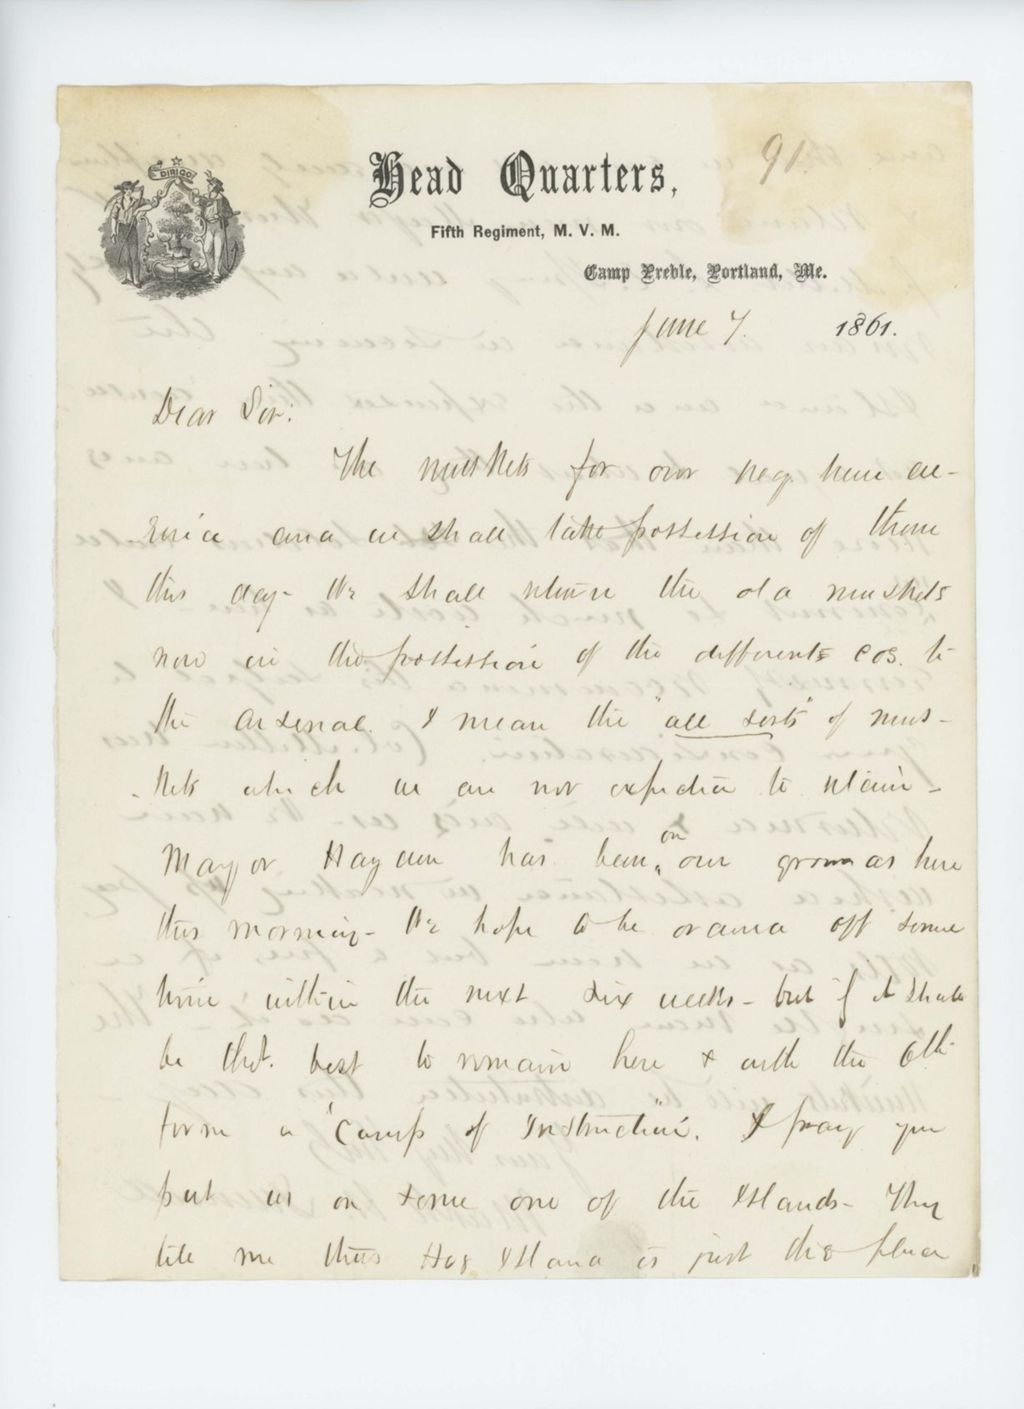 DIRIGO
Head Quarters,
Fifth Regiment, M. V. M.
Camp Preble, Portland, Me.
91.
June 7. 1861.
Dear Sir:
The muskets for our reg. have ar-
-rived and we shall take possession of them
this day - We shall return the old muskets
now in the possession of the different cos. to
the Arsenal. I mean the "all sorts" of mus-
-kets which we are not expected to retain -
Mayor Hayden has been on our grounds here
this morning - We hope to be ordered off some
time within the next six weeks - but if it shall
be tho't best to remain here & with the 6th
form a "Camp of Instruction". I pray you
put us on some one of the Islands - They
tell me this Hog Island is just the place